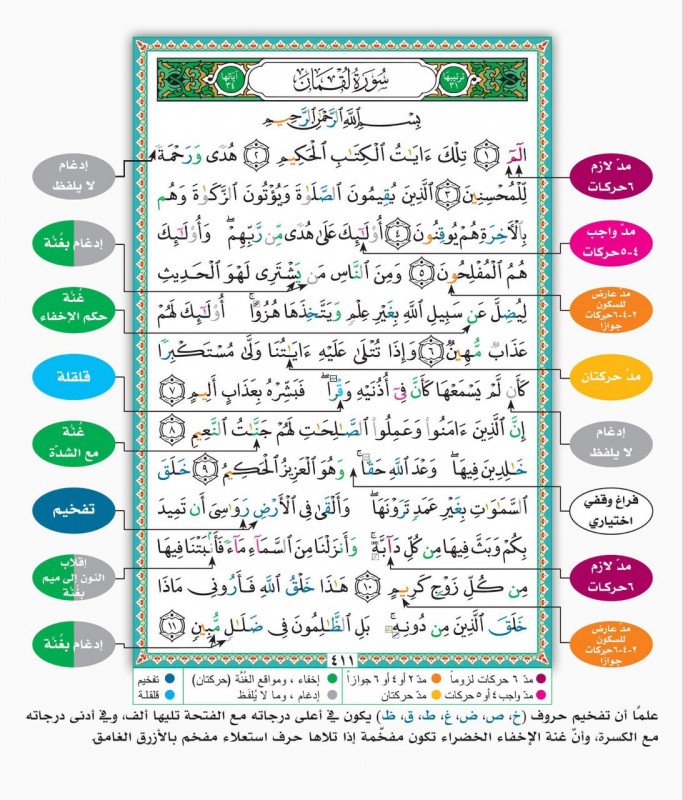 ترتيبها ٣١
سُورَةُ لُقْمَان
آياتها ٣٤
بِسْمِ ٱللَّهِ ٱلرَّحْمَٰنِ ٱلرَّحِيمِ
الٓمٓ ١ تِلْكَ ءَايَٰتُ ٱلْكِتَٰبِ ٱلْحَكِيمِ ٢ هُدًى وَرَحْمَةً
لِّلْمُحْسِنِينَ ٣ ٱلَّذِينَ يُقِيمُونَ ٱلصَّلَوٰةَ وَيُؤْتُونَ ٱلزَّكَوٰةَ وَهُم
بِٱلْأَخِرَةِ هُمْ يُوقِنُونَ ٤ أُوْلَٰٓئِكَ عَلَىٰ هُدًى مِّن رَّبِّهِمْ ۖ وَأُوْلَٰٓئِكَ
هُمُ ٱلْمُفْلِحُونَ ٥ وَمِنَ ٱلنَّاسِ مَن يَشْتَرِى لَهْوَ ٱلْحَدِيثِ
لِيُضِلَّ عَن سَبِيلِ ٱللَّهِ بِغَيْرِ عِلْمٍ وَيَتَّخِذَهَا هُزُوًا ۚ أُوْلَٰٓئِكَ لَهُمْ
عَذَابٌ مُّهِينٌ ٦ وَإِذَا تُتْلَىٰ عَلَيْهِ ءَايَٰتُنَا وَلَّىٰ مُسْتَكْبِرًا
كَأَن لَّمْ يَسْمَعْهَا كَأَنَّ فِىٓ أُذُنَيْهِ وَقْرًا ۖ فَبَشِّرْهُ بِعَذَابٍ أَلِيمٍ ٧
إِنَّ ٱلَّذِينَ ءَامَنُوا۟ وَعَمِلُوا۟ ٱلصَّٰلِحَٰتِ لَهُمْ جَنَّٰتُ ٱلنَّعِيمِ ٨
خَٰلِدِينَ فِيهَا ۖ وَعْدَ ٱللَّهِ حَقًّا ۚ وَهُوَ ٱلْعَزِيزُ ٱلْحَكِيمُ ٩ خَلَقَ
ٱلسَّمَٰوَٰتِ بِغَيْرِ عَمَدٍ تَرَوْنَهَا ۖ وَأَلْقَىٰ فِى ٱلْأَرْضِ رَوَٰسِىَ أَن تَمِيدَ
بِكُمْ وَبَثَّ فِيهَا مِن كُلِّ دَآبَّةٍ ۚ وَأَنزَلْنَا مِنَ ٱلسَّمَآءِ مَآءً فَأَنۢبَتْنَا فِيهَا
مِن كُلِّ زَوْجٍ كَرِيمٍ ١٠ هَٰذَا خَلْقُ ٱللَّهِ فَأَرُونِى مَاذَا
خَلَقَ ٱلَّذِينَ مِن دُونِهِۦ ۚ بَلِ ٱلظَّٰلِمُونَ فِى ضَلَٰلٍ مُّبِينٍ ١١
٤١١
مدّ لازم
٦ حركات
مدّ واجب
٤-٥ حركات
مدّ عارض
للسكون
٢-٤-٦ حركات
جوازًا
مدّ حركتان
إدغام
لا يلفظ
فراغ وقفي
اختياري
مدّ لازم
٦ حركات
مدّ عارض
للسكون
٢-٤-٦ حركات
جوازًا
إدغام
لا يلفظ
إدغام بغُنَّة
غُنَّة
حكم الإخفاء
قلقلة
غُنَّة
مع الشدّة
تفخيم
إقلاب
النون إلى ميم
بغُنَّة
إدغام بغُنَّة
مدّ ٦ حركات لزوماً
مدّ ٢ أو ٤ أو ٦ جوازاً
إخفاء ، ومواقع الغُنَّة (حركتان)
تفخيم
مدّ واجب ٤ أو ٥ حركات
مدّ حركتان
إدغام ، وما لا يُلفَظ
قلقلة
علمًا أن تفخيم حروف (خ، ص، ض، غ، ط، ق، ظ) يكون في أعلى درجاته مع الفتحة تليها ألف، وفي أدنى درجاته
مع الكسرة، وأنّ غنة الإخفاء الخضراء تكون مفخّمة إذا تلاها حرف استعلاء مفخم بالأزرق الغامق.